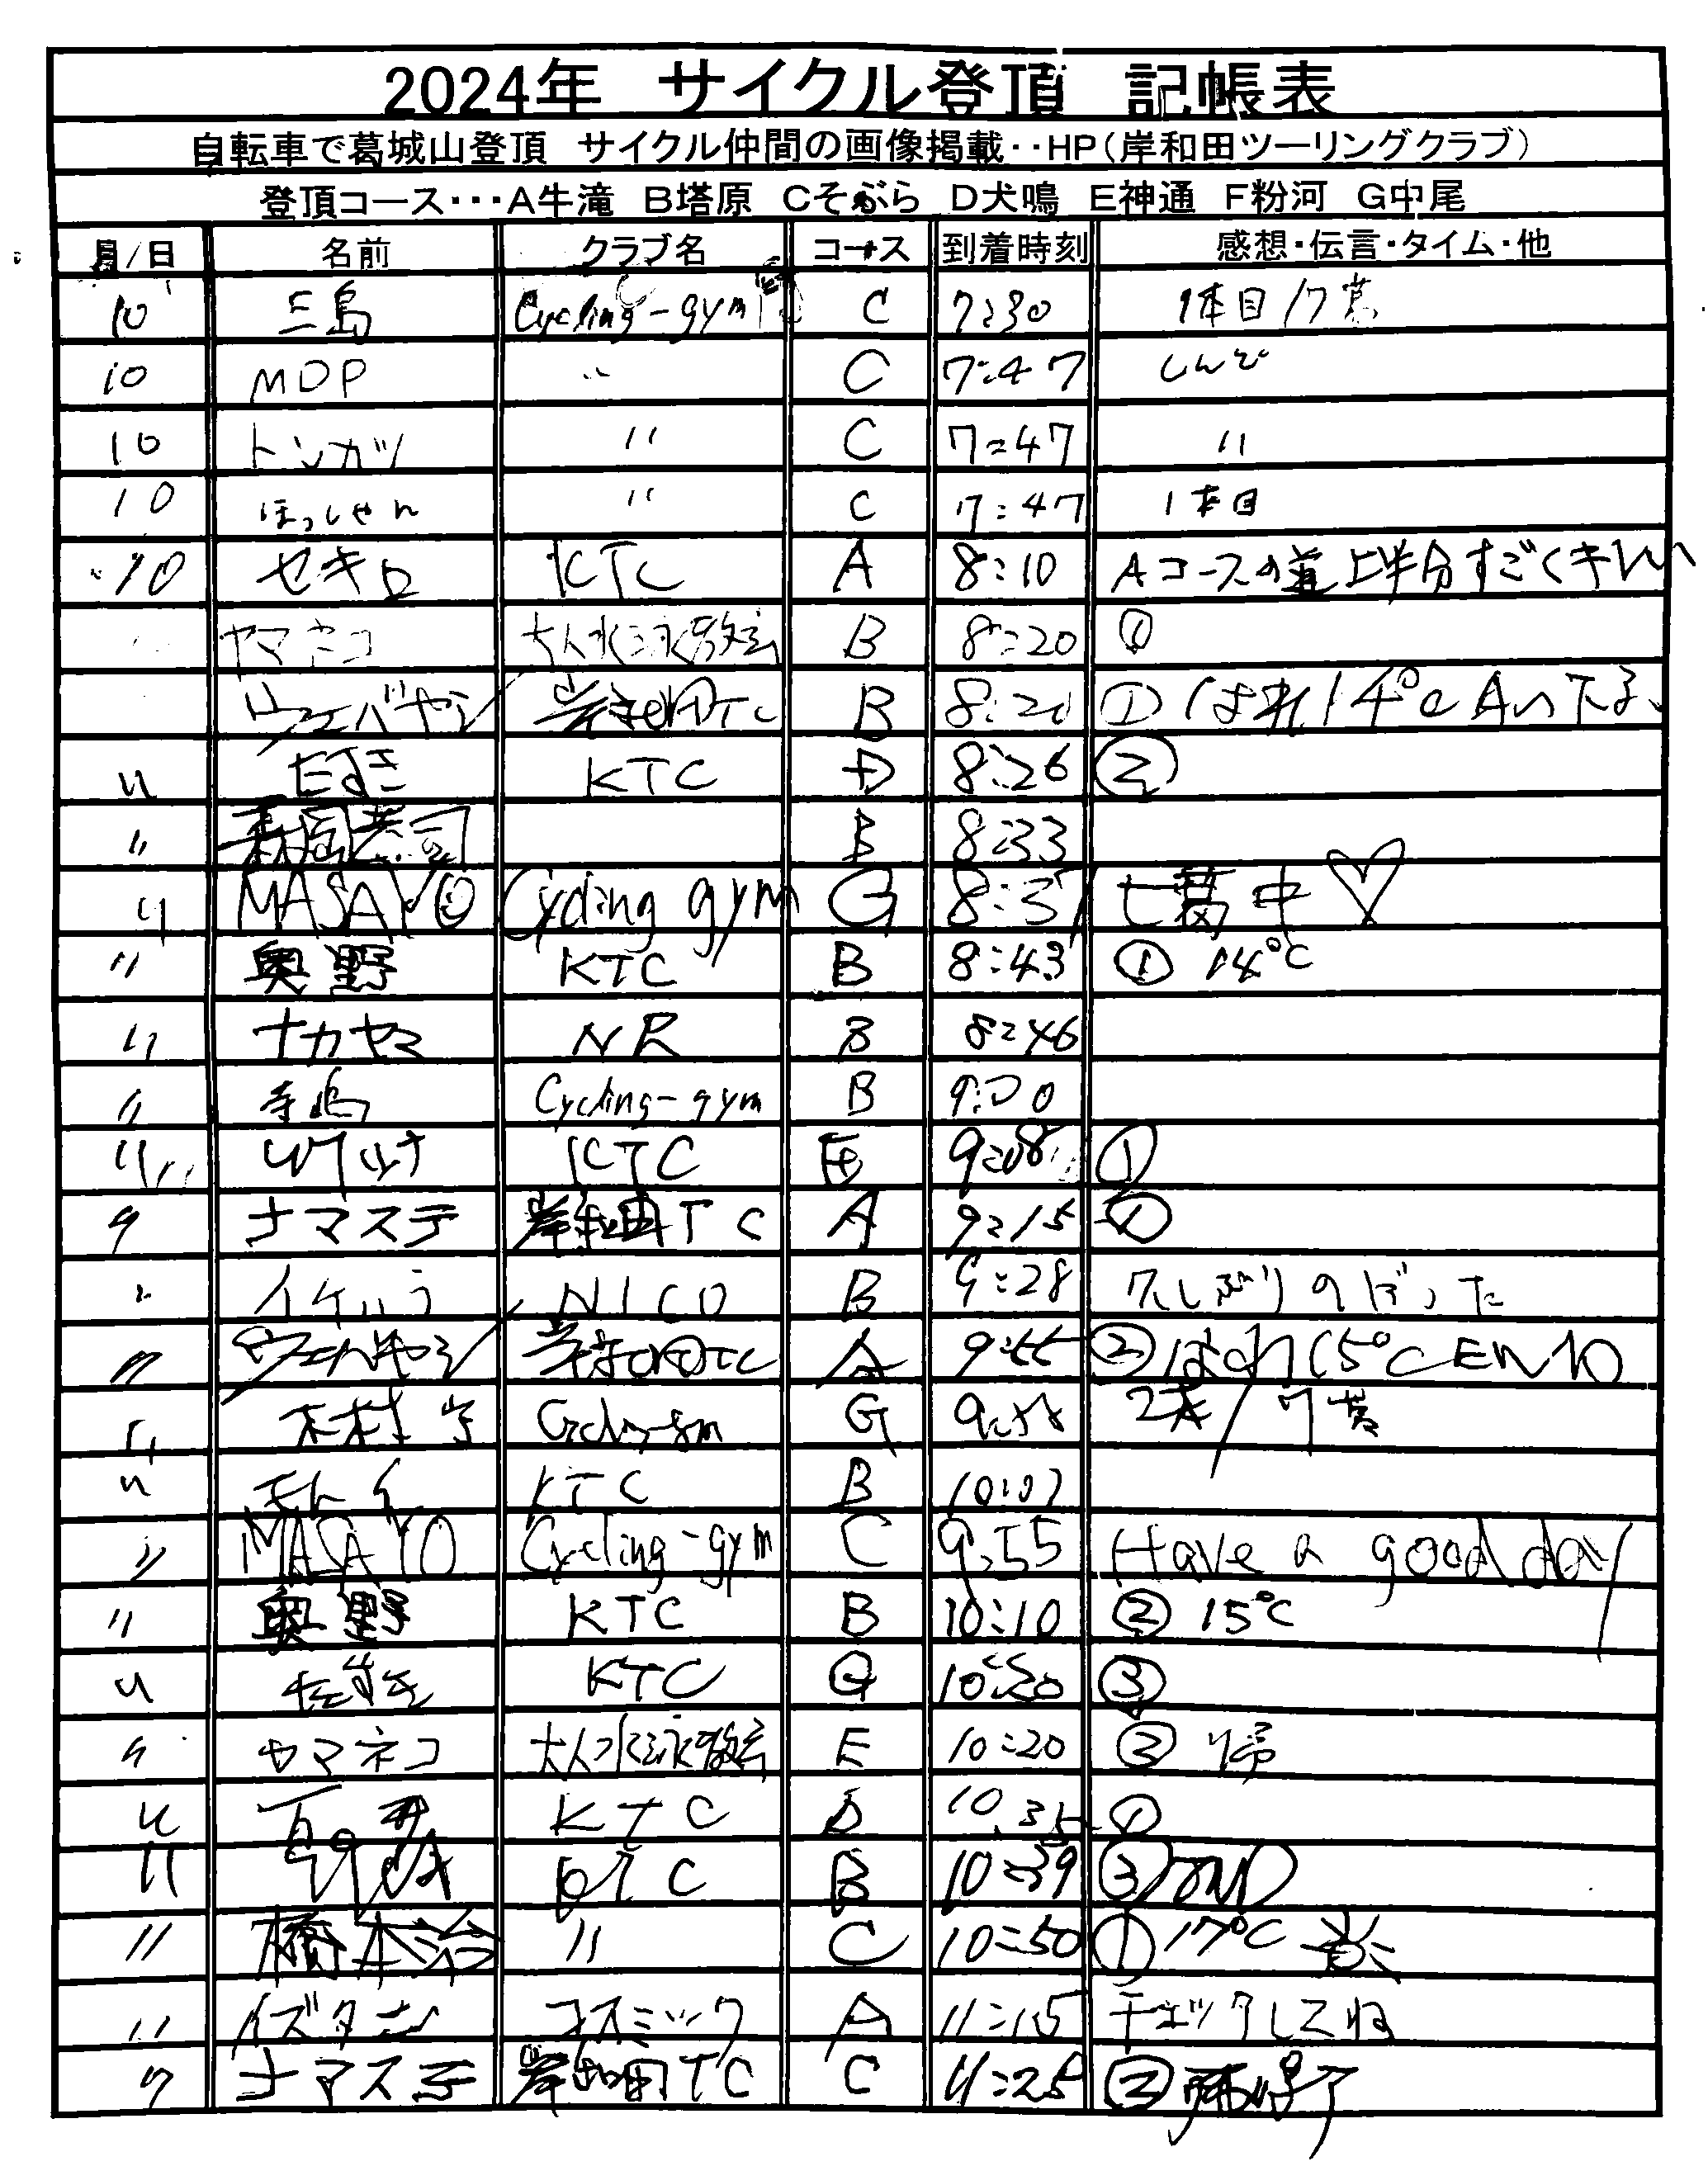 2024年 サイクル登頂 記帳表
自転車で葛城山登頂 サイクル仲間の画像掲載‥HP(岸和田ツーリングクラブ)
登頂コース・・・A牛滝 B塔原 Cそぶら D犬鳴 E神通 F粉河 G中尾
月/日 名前 クラブ名 コース 到着時刻 感想・伝言・タイム・他
10 三島 Cycling-gym C 7:30 1本目/7葛
10 MOP 〃 C 7:47 しんど
10 トンカツ 〃 C 7:47 〃
10 ほっしゃん 〃 C 7:47 1本目
10 セキロ KTC A 8:10 Aコースの道上半分すごくキレい
ヤマネコ 大人水泳教室 B 8:20 ①
ウエバヤシ 岸和田TC B 8:20 ① はれ 14℃ Aへ下る
〃 KTC D 8:26 ②
〃 B 8:33
〃 MASAYO Cycling gym G 8:37 七葛中♡
〃 奥野 KTC B 8:43 ① 14℃
〃 ナカヤマ NR B 8:46
〃 寺嶋 Cycling-gym B 9:00
〃 KTC E 9:08 ①
〃 ナマステ 岸和田TC A 9:15 ①
〃 NICO B 9:28 久しぶりのぼった
〃 ウエバヤシ 岸和田TC A 9:55 ② はれ 15℃ Eへ
〃 木村 G 2本/7葛
〃 KTC B 10:07
〃 MASAYO Cycling-gym C 9:55 Have a good day
〃 奥野 KTC B 10:10 ② 15℃
〃 KTC G 10:20 ③
〃 ヤマネコ 大人水泳教室 E 10:20 ② 帰
〃 KTC D 10:35 ①
〃 B 10:39 ③
〃 橋本治 〃 C 10:50 ① 17℃
〃 イズタニ コスミック A 11:15 チェックしてね
〃 ナマステ 岸和田TC C 11:25 ②